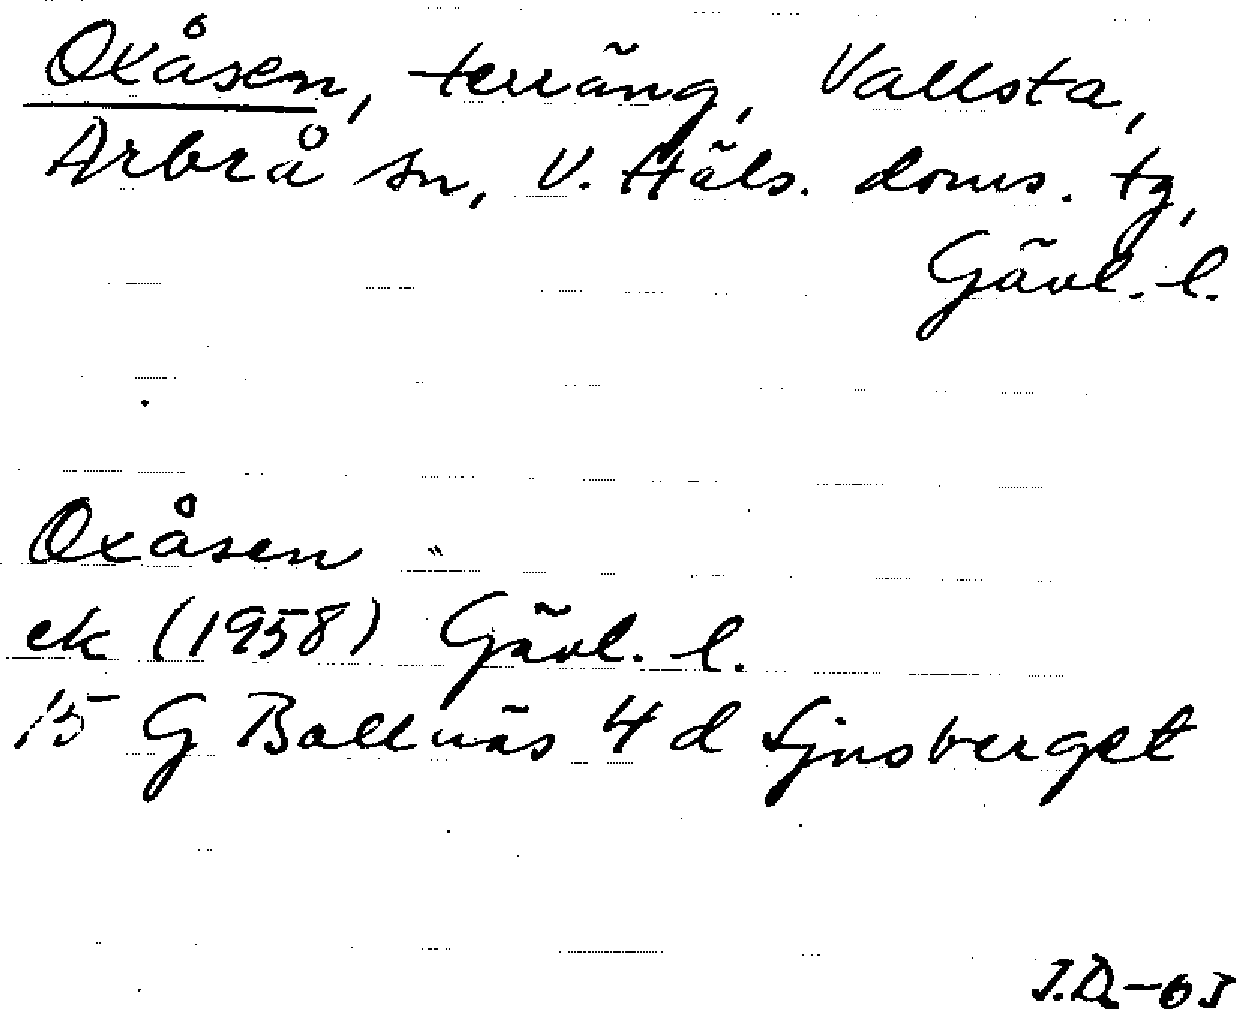 Oxåsen, terräng, Vallsta,
Arbrå sn, V. Häls. doms. tg,
Gävl. l.
Oxåsen "
ek (1958) Gävl. l.
15 G Bollnäs 4 d Ljusberget